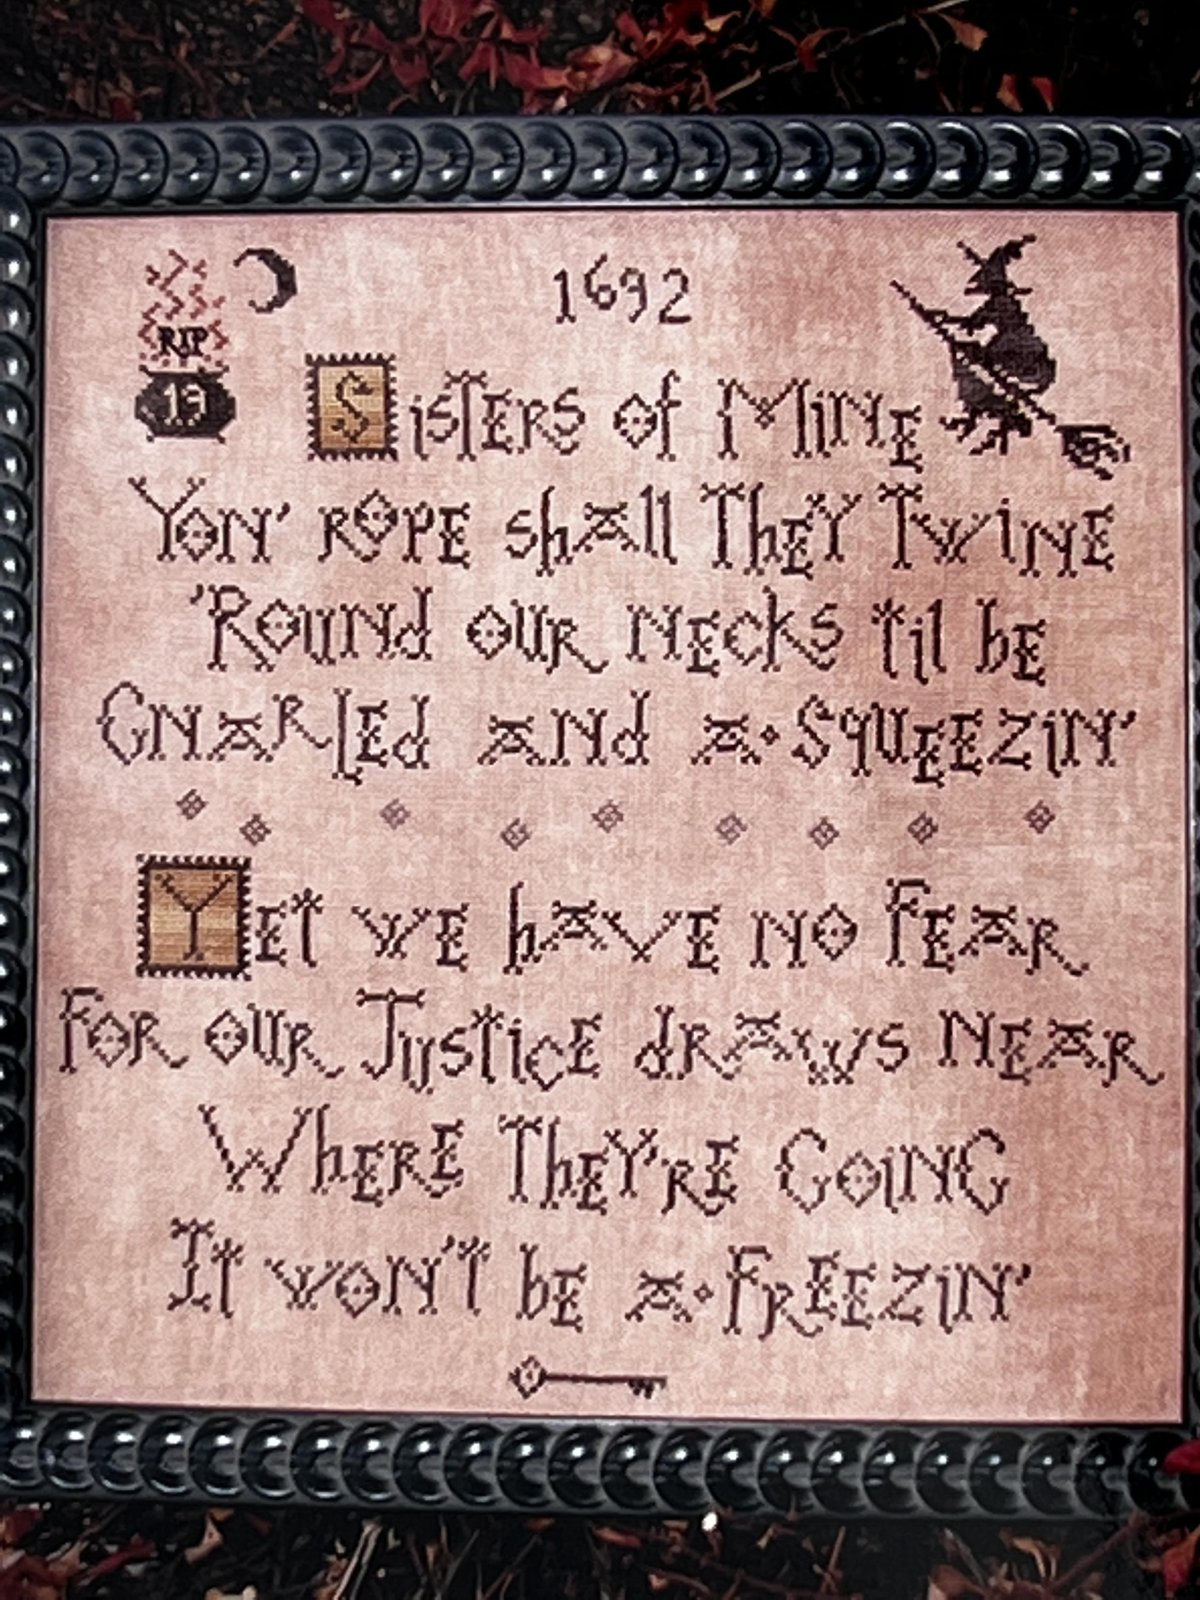 1692
RIP
13
Sisters of Mine
Yon' rope shall They Twine
'Round our necks til be
Gnarled and a·Squeezin'
Yet we have no Fear
For our Justice draws Near
Where They're Going
It won't be a·Freezin'